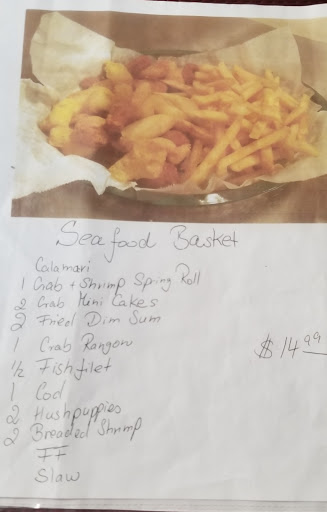 Seafood Basket
Calamari
1 Crab + Shrimp Spring Roll
2 Crab Mini Cakes
2 Fried Dim Sum
1 Crab Rangon
$14.99
1/2 Fishfilet
1 Cod
2 Hushpuppies
2 Breaded Shrimp
FF
Slaw